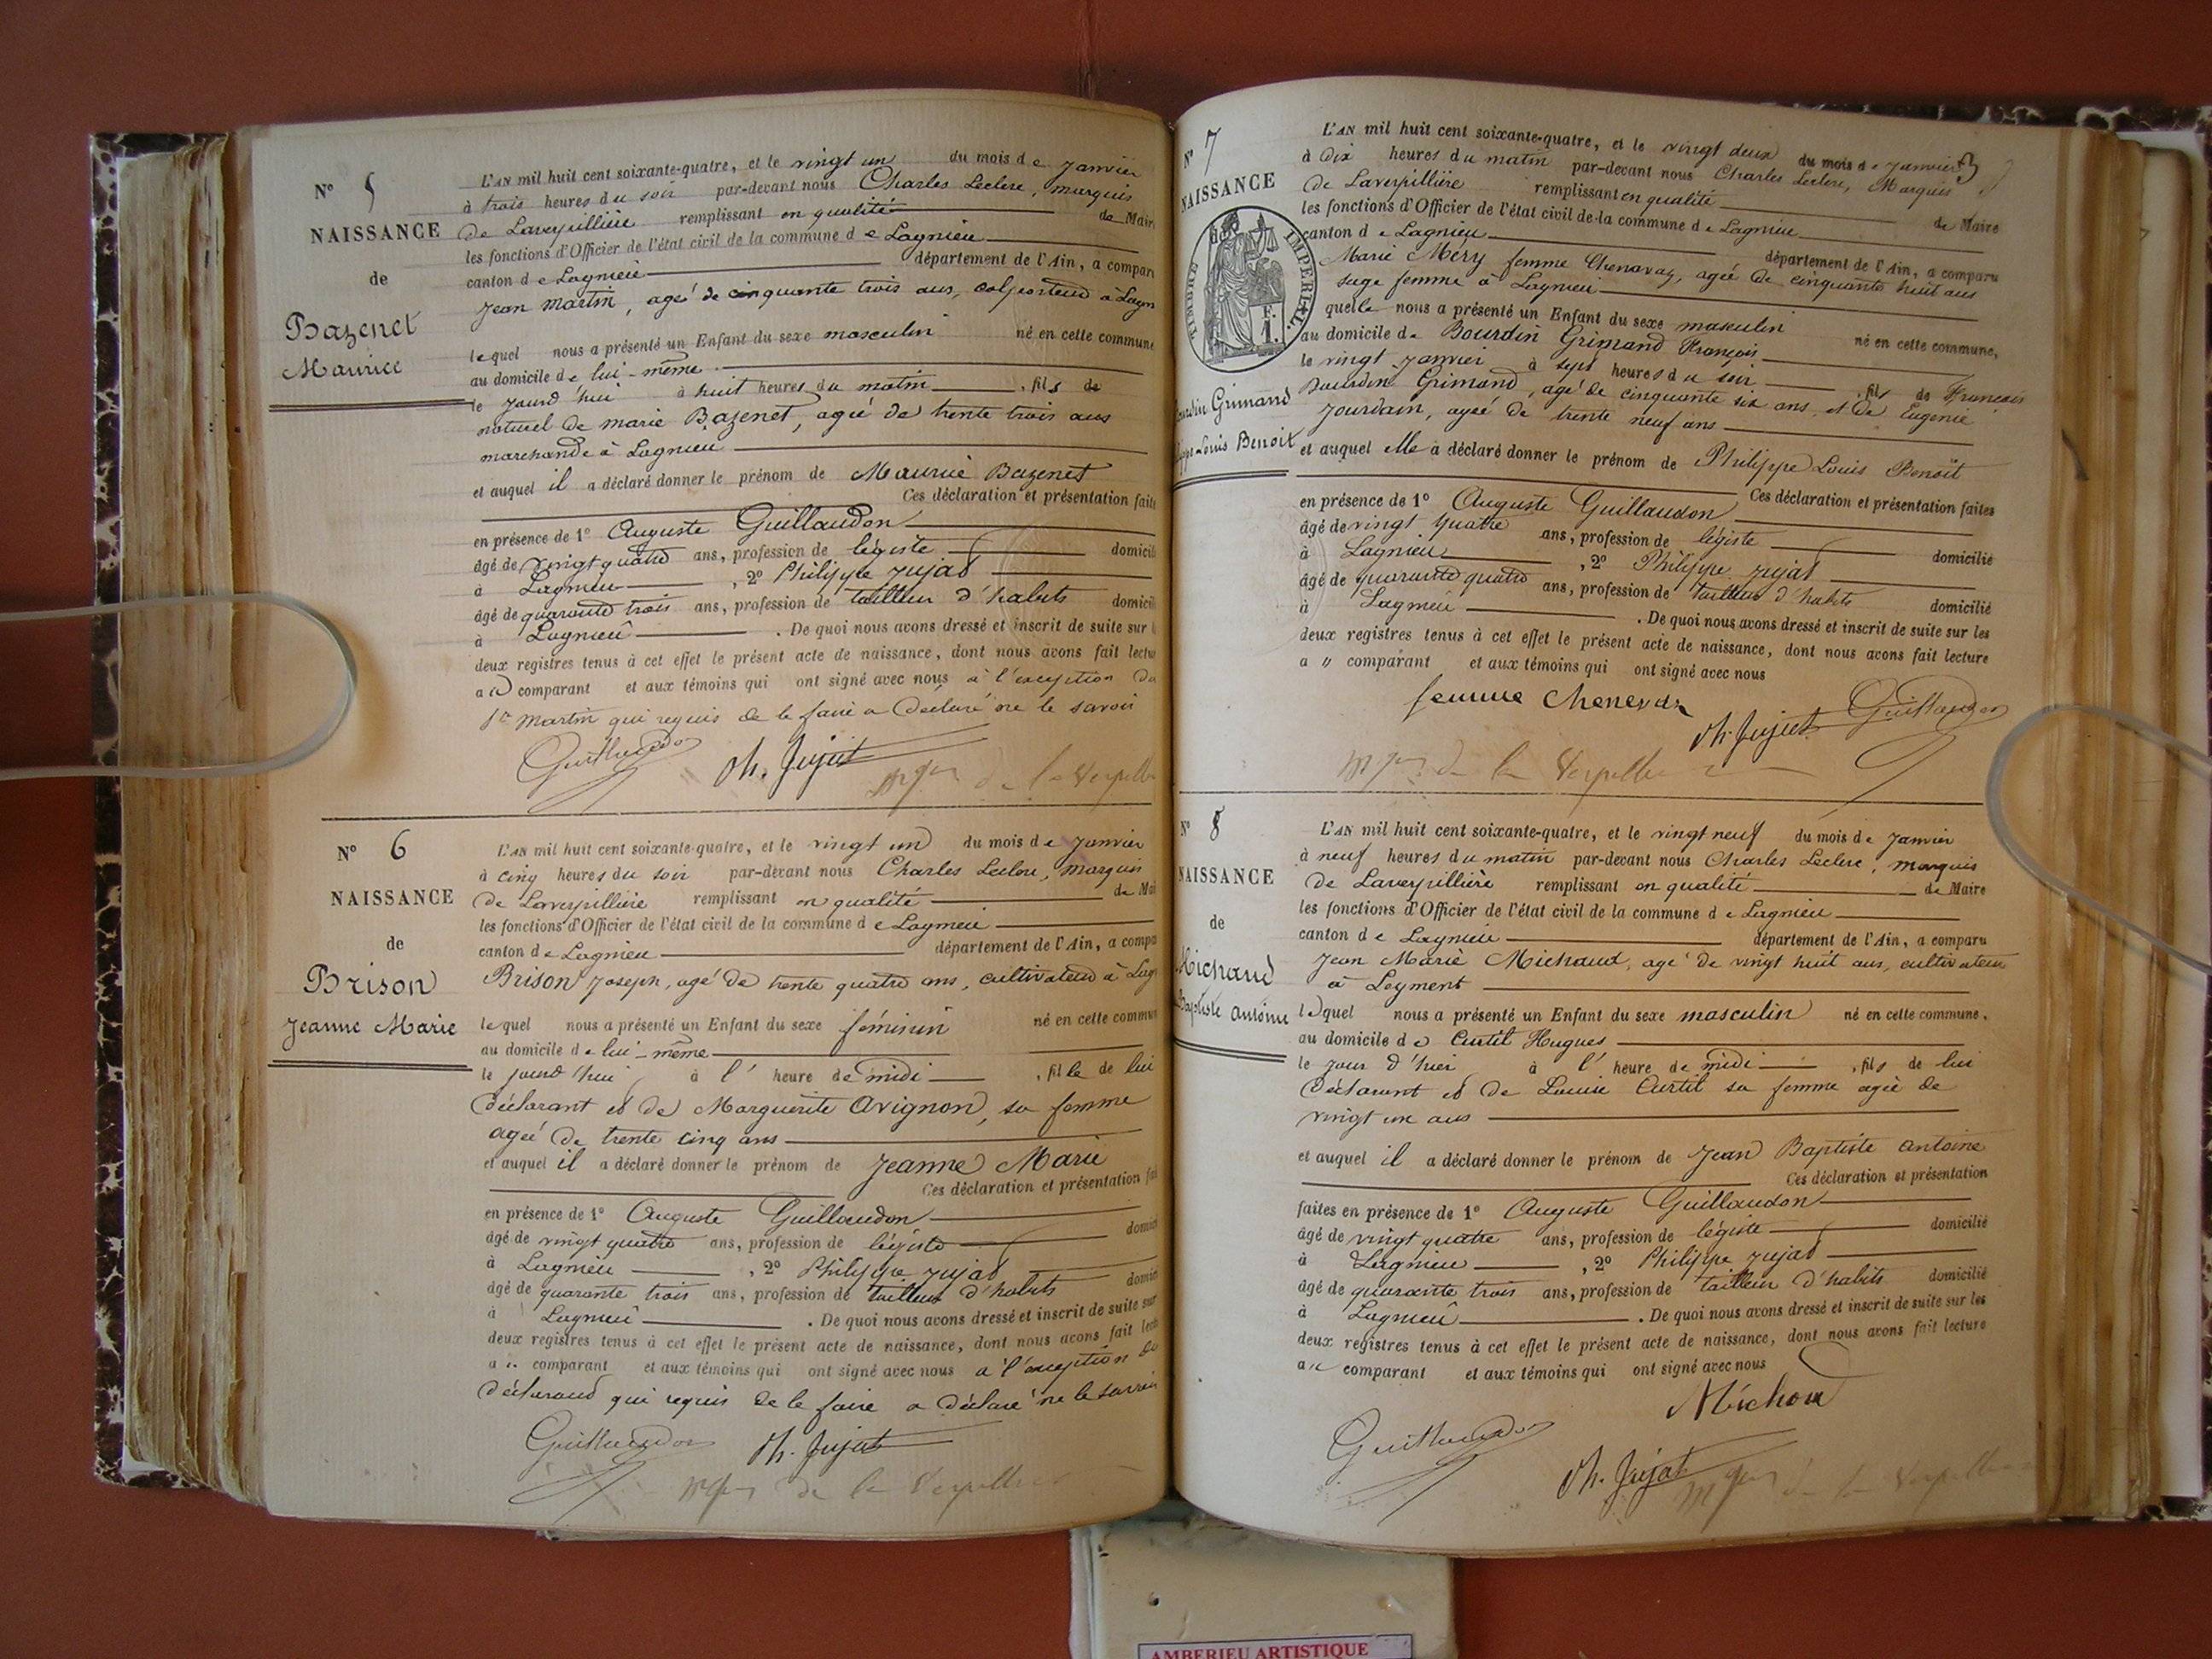 N° 5
NAISSANCE
de
Bazenet
Maurice
L'AN mil huit cent soixante-quatre, et le vingt un du mois de Janvier
à trois heures du soir par-devant nous Charles Leclerc, marquis
de Laverpillière remplissant en qualité de Mair
les fonctions d'Officier de l'état civil de la commune de Lagnieu
canton de Lagnieu département de l'Ain, a compar
Jean Martin, agé de cinquante trois ans, colporteur à Lagn
lequel nous a présenté un Enfant du sexe masculin né en cette commune
au domicile de lui-même
le jourd'hui à huit heures du matin, fils de
naturel de marie Bazenet, agée de trente trois ans
marchande à Lagnieu
et auquel il a déclaré donner le prénom de Maurice Bazenet
Ces déclaration et présentation faite
en présence de 1° Auguste Guillaudon
âgé de vingt quatre ans, profession de légiste domicili
à Lagnieu, 2° Philippe Jujat
âgé de quarante trois ans, profession de tailleur d'habits domicili
à Lagnieu. De quoi nous avons dressé et inscrit de suite sur l
deux registres tenus à cet effet le présent acte de naissance, dont nous avons fait lectur
au comparant et aux témoins qui ont signé avec nous à l'exception du
Sr Martin qui requis de le faire a déclaré ne le savoir
Guillaudon Ph. Jujat
Mqis de la Verpilli
N° 6
NAISSANCE
de
Brison
Jeanne Marie
L'AN mil huit cent soixante-quatre, et le vingt un du mois de Janvier
à cinq heures du soir par-devant nous Charles Leclerc, marquis
de Laverpillière remplissant en qualité de Mai
les fonctions d'Officier de l'état civil de la commune de Lagnieu
canton de Lagnieu département de l'Ain, a compa
Brison Joseph, agé de trente quatre ans, cultivateur à Lag
lequel nous a présenté un Enfant du sexe féminin né en cette commun
au domicile de lui-même
le jourd'hui à l'heure de midi, fille de lui
déclarant et de Marguerite Avignon, sa femme
agée de trente cinq ans
et auquel il a déclaré donner le prénom de Jeanne Marie
Ces déclaration et présentation fai
en présence de 1° Auguste Guillaudon
âgé de vingt quatre ans, profession de légiste domici
à Lagnieu, 2° Philippe Jujat
âgé de quarante trois ans, profession de tailleur d'habits domici
à Lagnieu. De quoi nous avons dressé et inscrit de suite sur
deux registres tenus à cet effet le présent acte de naissance, dont nous avons fait lectu
au comparant et aux témoins qui ont signé avec nous à l'exception du
déclarant qui requis de le faire a déclaré ne le savoir
Guillaudon Ph. Jujat
Mqis de la Verpilliere
N° 7
NAISSANCE
de
TIMBRE IMPERIAL
F.
1.
ourdin Grimand
ippe Louis Benoit
3
L'AN mil huit cent soixante-quatre, et le vingt deux du mois de Janvier
à dix heures du matin par-devant nous Charles Leclerc, Marquis
de Laverpillière remplissant en qualité de Maire
les fonctions d'Officier de l'état civil de la commune de Lagnieu
canton de Lagnieu département de l'Ain, a comparu
Marie Méry femme Chenavaz, agée de cinquante huit ans
sage femme à Lagnieu
quelle nous a présenté un Enfant du sexe masculin né en cette commune,
au domicile de Bourdin Grimand François
le vingt janvier à sept heures du soir, fils de François
Bourdin Grimand, agé de cinquante six ans, et de Eugenie
Jourdain, agée de trente neuf ans
et auquel elle a déclaré donner le prénom de Philippe Louis Benoît
Ces déclaration et présentation faites
en présence de 1° Auguste Guillaudon
âgé de vingt quatre ans, profession de légiste domicilié
à Lagnieu, 2° Philippe Jujat
âgé de quarante quatre ans, profession de tailleur d'habits domicilié
à Lagnieu. De quoi nous avons dressé et inscrit de suite sur les
deux registres tenus à cet effet le présent acte de naissance, dont nous avons fait lecture
a " comparant et aux témoins qui ont signé avec nous
femme Chenevaz
Ph. Jujat Guillaudon
Mqis de la Verpilliere
N° 8
NAISSANCE
de
Michaud
Baptiste Antoine
L'AN mil huit cent soixante-quatre, et le vingt neuf du mois de Janvier
à neuf heures du matin par-devant nous Charles Leclerc, marquis
de Laverpillière remplissant en qualité de Maire
les fonctions d'Officier de l'état civil de la commune de Lagnieu
canton de Lagnieu département de l'Ain, a comparu
Jean Marie Michaud, agé de vingt huit ans, cultivateur
à Leyment
lequel nous a présenté un Enfant du sexe masculin né en cette commune,
au domicile de Curtil Hugues
le jour d'hier à l'heure de midi, fils de lui
déclarant et de Louise Curtil sa femme agée de
vingt un ans
et auquel il a déclaré donner le prénom de Jean Baptiste Antoine
Ces déclaration et présentation
faites en présence de 1° Auguste Guillaudon
âgé de vingt quatre ans, profession de légiste domicilié
à Lagnieu, 2° Philippe Jujat
âgé de quarante trois ans, profession de tailleur d'habits domicilié
à Lagnieu. De quoi nous avons dressé et inscrit de suite sur les
deux registres tenus à cet effet le présent acte de naissance, dont nous avons fait lecture
au comparant et aux témoins qui ont signé avec nous
Michou
Guillaudon
Ph. Jujat
Mqis de la Verpilliere
AMBERIEU ARTISTIQUE